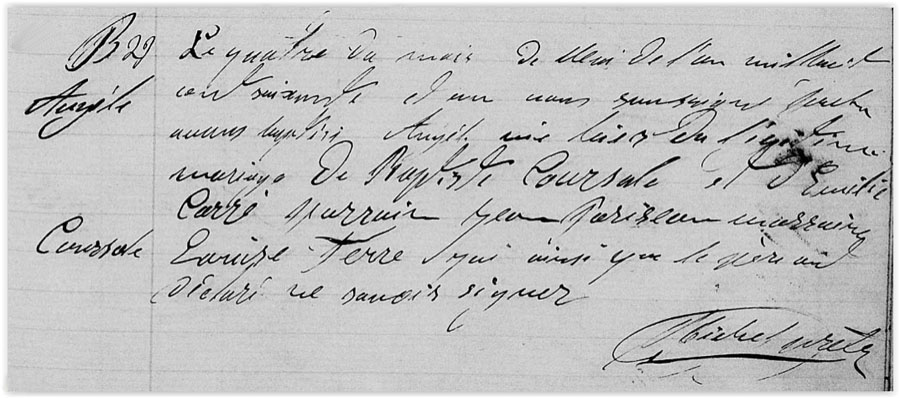 B 29 Le quatre du mois de Mai de l'an mil huit
Angèle cent soixante et un nous soussigné prêtre
avons baptisé Angèle née hier du légitime
mariage de Baptiste Coursole et d'Emilie
Carré parrain Jean Pariseau marraine
Coursole Louise Ferre qui ainsi que le père ont
déclaré ne savoir signer
Michel ptre